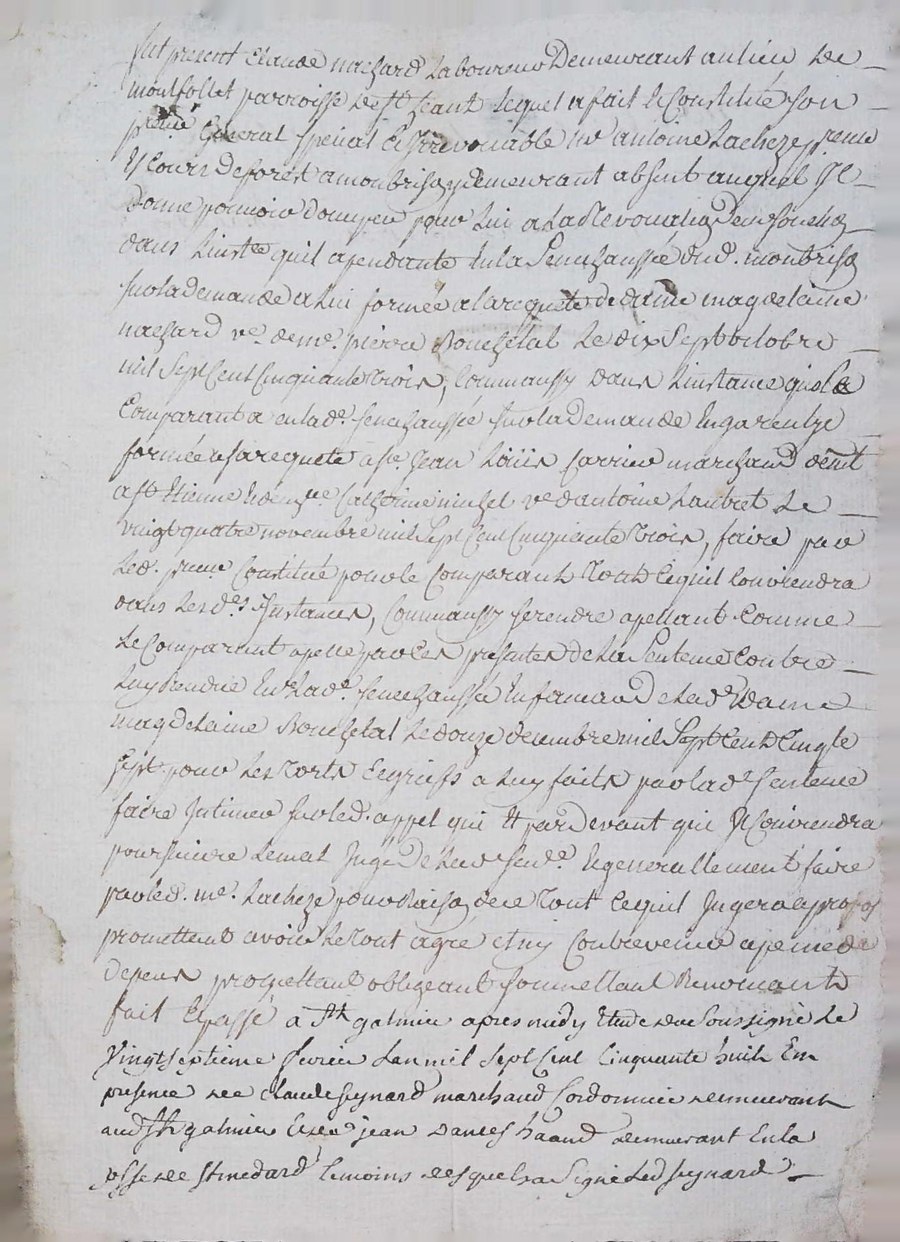 fut present Claude nachard Laboureur Demeurant au lieu de
montfollet parroisse de st jeant lequel a fait et Constitué son
General special et Irrevocable me antoine Lacheze
es Cours de forest a monbrison y demeurant absent auquel Il
donne pouvoir doccuper pour Lui a La Revocation
dans Linstce quil a pendante En la Senechaussée dud. monbrison
sur la demande a Lui formée a la requete de dame magdelaine
nachard ve. de me. pierre Bouchetal Le dix Sept octobre
mil Sept Cent Cinquante trois, Comm aussy dans Linstance que le
Comparant a en lad. senechaussée sur la Demande En garentye
formée a sa requete a sr. Jean Loüis marchand
a st Etienne Catherine michel ve dantoine Laubret Le
vingt quatre novembre mil Sept Cent Cinquante trois, faire par
Led. Constitué pour le Comparant Tout Ce quil Conviendra
dans Lesdes Instances, Comm aussy se rendre apellant Comme
Le Comparant apelle par Ces presentes de La Sentence Contre
Luy Rendüe En Lade. Senechaussée En faveur de Lade Dame
magdelaine Bouchetal Le douze decembre mil Sept Cent Cinqte
sept pour Les Torts et griefs a Luy faits par lade Sentence
faire Intimer sur led. appel qui Et par devant qui Il Conviendra
poursuivre Et generallement faire
par led. me. Lacheze pour Raison de ce Tout Ce quil Jugera a propos
promettant avoir Le tout agré et ny Contrevenir a peine de
depens promettant obligeant soumettant Renoncant
fait Et passé a St galmier apres midy Etude du Soussigné Le
vingt septieme fevrier Lan mil sept Cent Cinquante huit Em
presence de Claude peynard marchand Cordonnier demeurant
aud St galmier Et de jean demeurant En la
psse de St medard temoins desquels a Signé Led peynard